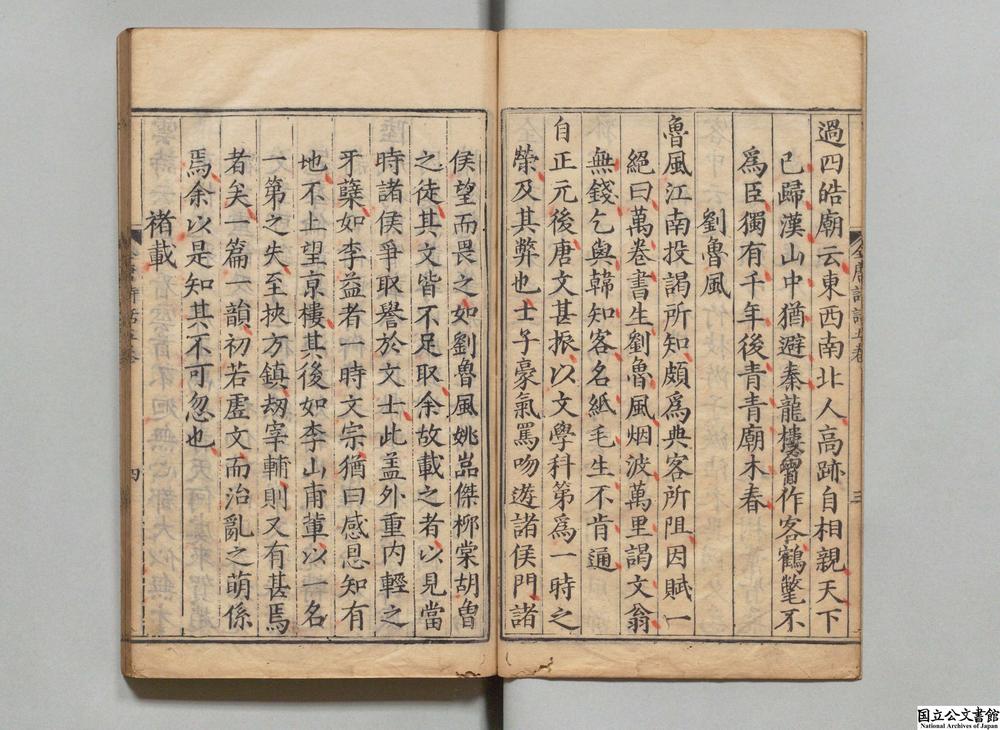 過四皓廟云東西南北人高跡自相親天下
已歸漢山中猶避秦龍樓曾作客鶴氅不
爲臣獨有千年後青青廟木春
劉魯風
魯風江南投謁所知頗爲典客所阻因賦一
絕曰萬卷書生劉魯風烟波萬里謁文翁
無錢乞與韓知客名紙毛生不肯通
自正元後唐文甚振以文學科第爲一時之
榮及其弊也士子豪氣罵吻遊諸侯門諸
三
侯望而畏之如劉魯風姚嵓傑柳棠胡曾
之徒其文皆不足取余故載之者以見當
時諸侯爭取譽於文士此盖外重内輕之
牙蘖如李益者一時文宗猶曰感恩知有
地不上望京樓其後如李山甫軰以一名
一第之失至挾方鎮刼宰輔則又有甚焉
者矣一篇一韻初若虛文而治亂之萌係
焉余以是知其不可忽也
褚載
四
国立公文書館
National Archives of Japan